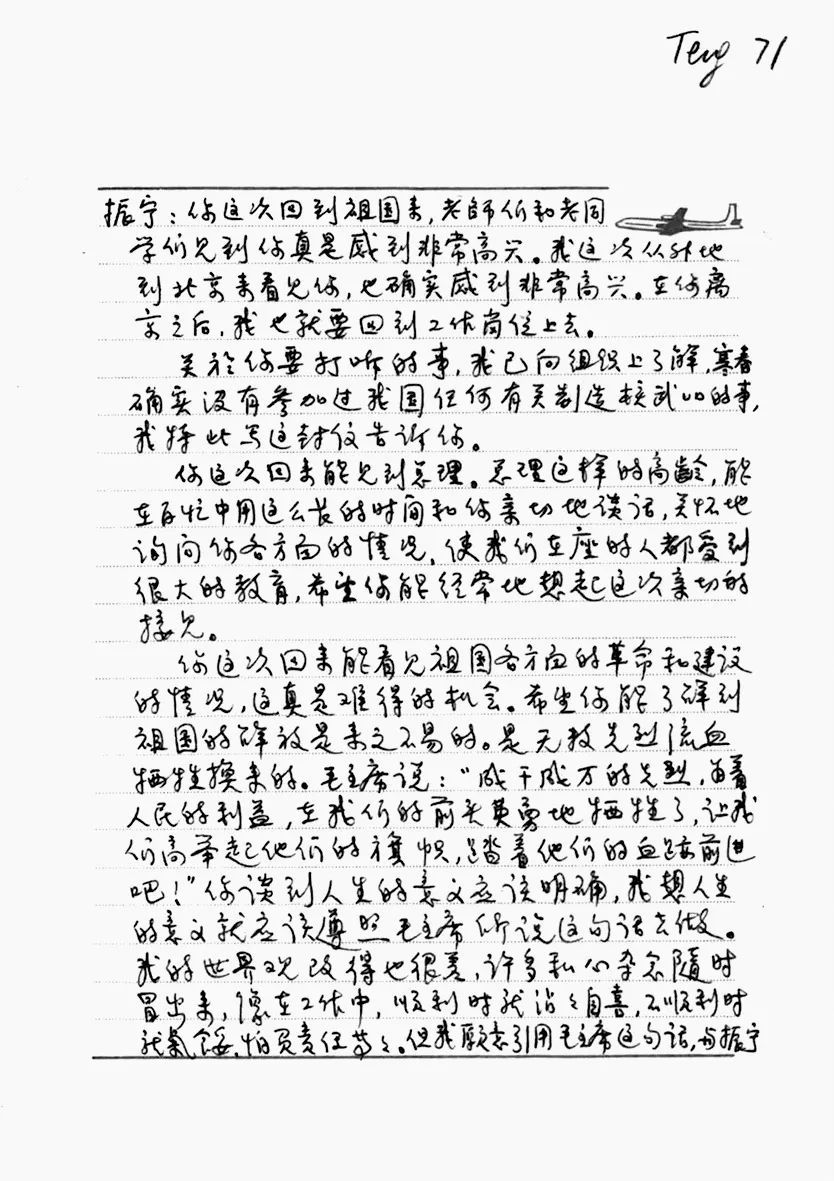 Teng 71
振宁：你这次回到祖国来，老師们和老同
学们见到你真是感到非常高兴。我这次从外地
到北京来看见你，也确实感到非常高兴。在你离
京之后，我也就要回到工作岗位上去。
关於你要打听的事，我已向组织上了解，寒春
确实没有参加过我国任何有关制造核武四的事，
我特此写这封信告诉你。
你这次回来能见到总理。总理这样的高龄，能
在百忙中用这么长的时间和你亲切地谈话，关怀地
询问你各方面的情况，使我们在座的人都受到
很大的教育，希望你能经常地想起这次亲切的
接见。
你这次回来能看见祖国各方面的革命和建设
的情况，这真是难得的机会。希望你能了解到
祖国的解放是来之不易的。是无数先烈流血
牺牲换来的。毛主席说：“成千成万的先烈，为着
人民的利益，在我们的前头英勇地牺牲了，让我
们高举起他们的旗帜，踏着他们的血迹前进
吧！”你谈到人生的意义应该明确，我想人生
的意义就应该遵照毛主席所说这句话去做。
我的世界观改得也很差，许多私心杂念随时
冒出来，像在工作中，顺利时就沾々自喜，不顺利时
就氣餒，怕负责任等々。但我愿意引用毛主席这句话，与振宁